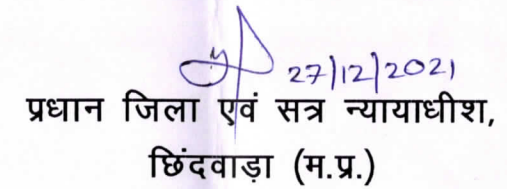 27/12/2021
प्रधान जिला एवं सत्र न्यायाधीश,
छिंदवाड़ा (म.प्र.)